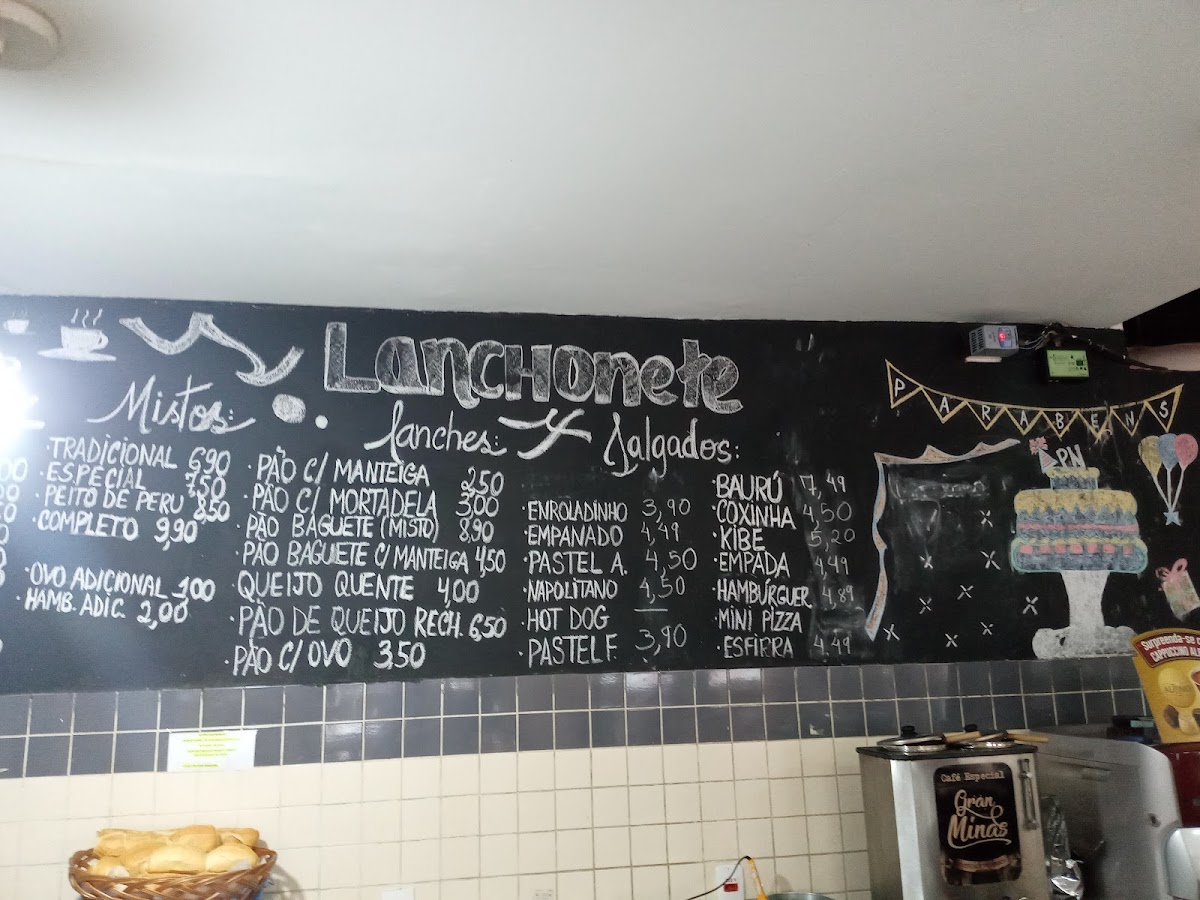 Lanchonete
Mistos:
·TRADICIONAL 6,90
·ESPECIAL 7,50
·PEITO DE PERU 8,50
·COMPLETO 9,90
·OVO ADICIONAL 1,00
·HAMB. ADIC. 2,00
Lanches:
·PÃO C/ MANTEIGA 2,50
·PÃO C/ MORTADELA 3,00
·PÃO BAGUETE (MISTO) 8,90
·PÃO BAGUETE C/ MANTEIGA 4,50
·QUEIJO QUENTE 4,00
·PÃO DE QUEIJO RECH. 6,50
·PÃO C/ OVO 3,50
Salgados:
·ENROLADINHO 3,90
·EMPANADO 4,49
·PASTEL A. 4,50
·NAPOLITANO 4,50
·HOT DOG —
·PASTEL F. 3,90
·BAURÚ 7,49
·COXINHA 4,50
·KIBE 5,20
·EMPADA 4,49
·HAMBÚRGUER 4,89
·MINI PIZZA
·ESFIRRA 4,49
PARABENS
PN
Surpreenda-se c
CAPPUCCINO AL
Café Especial
Gran
Minas